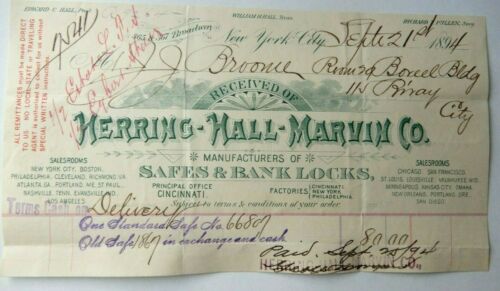 EDWARD C. HALL, Pres.
WILLIAM H. HALL, Treas.
RICHARD T. PULLEN, Secy.
365 & 367 Broadway
New York City, Sept 21st 1894
J. Broome
Room 29 Boreel Bldg
115 B'way
City
ALL REMITTANCES must be made DIRECT
TO US. NO LOCAL, STATE or TRAVELING
AGENT is authorized to collect for us without
SPECIAL WRITTEN INSTRUCTIONS.
RECEIVED OF
HERRING-HALL-MARVIN CO.
MANUFACTURERS OF
SAFES & BANK LOCKS,
SALESROOMS
NEW YORK CITY, BOSTON,
PHILADELPHIA, CLEVELAND, RICHMOND, VA.
ATLANTA, GA. PORTLAND, ME. ST. PAUL,
NASHVILLE, TENN. EVANSVILLE, IND.
LOS ANGELES.
PRINCIPAL OFFICE
CINCINNATI.
FACTORIES, CINCINNATI, NEW YORK, PHILADELPHIA.
SALESROOMS
CHICAGO SAN FRANCISCO,
ST. LOUIS, LOUISVILLE, MILWAUKEE WIS.
MINNEAPOLIS, KANSAS CITY, OMAHA,
NEW ORLEANS, PORTLAND, ORE.
SAN DIEGO.
Subject to terms & conditions of your order.
Terms Cash on Delivery
One Standard Safe No. 66807
Old Safe 1867 in exchange and cash 80.00
Paid. Sept 25/94
HERRING-HALL-MARVIN CO.